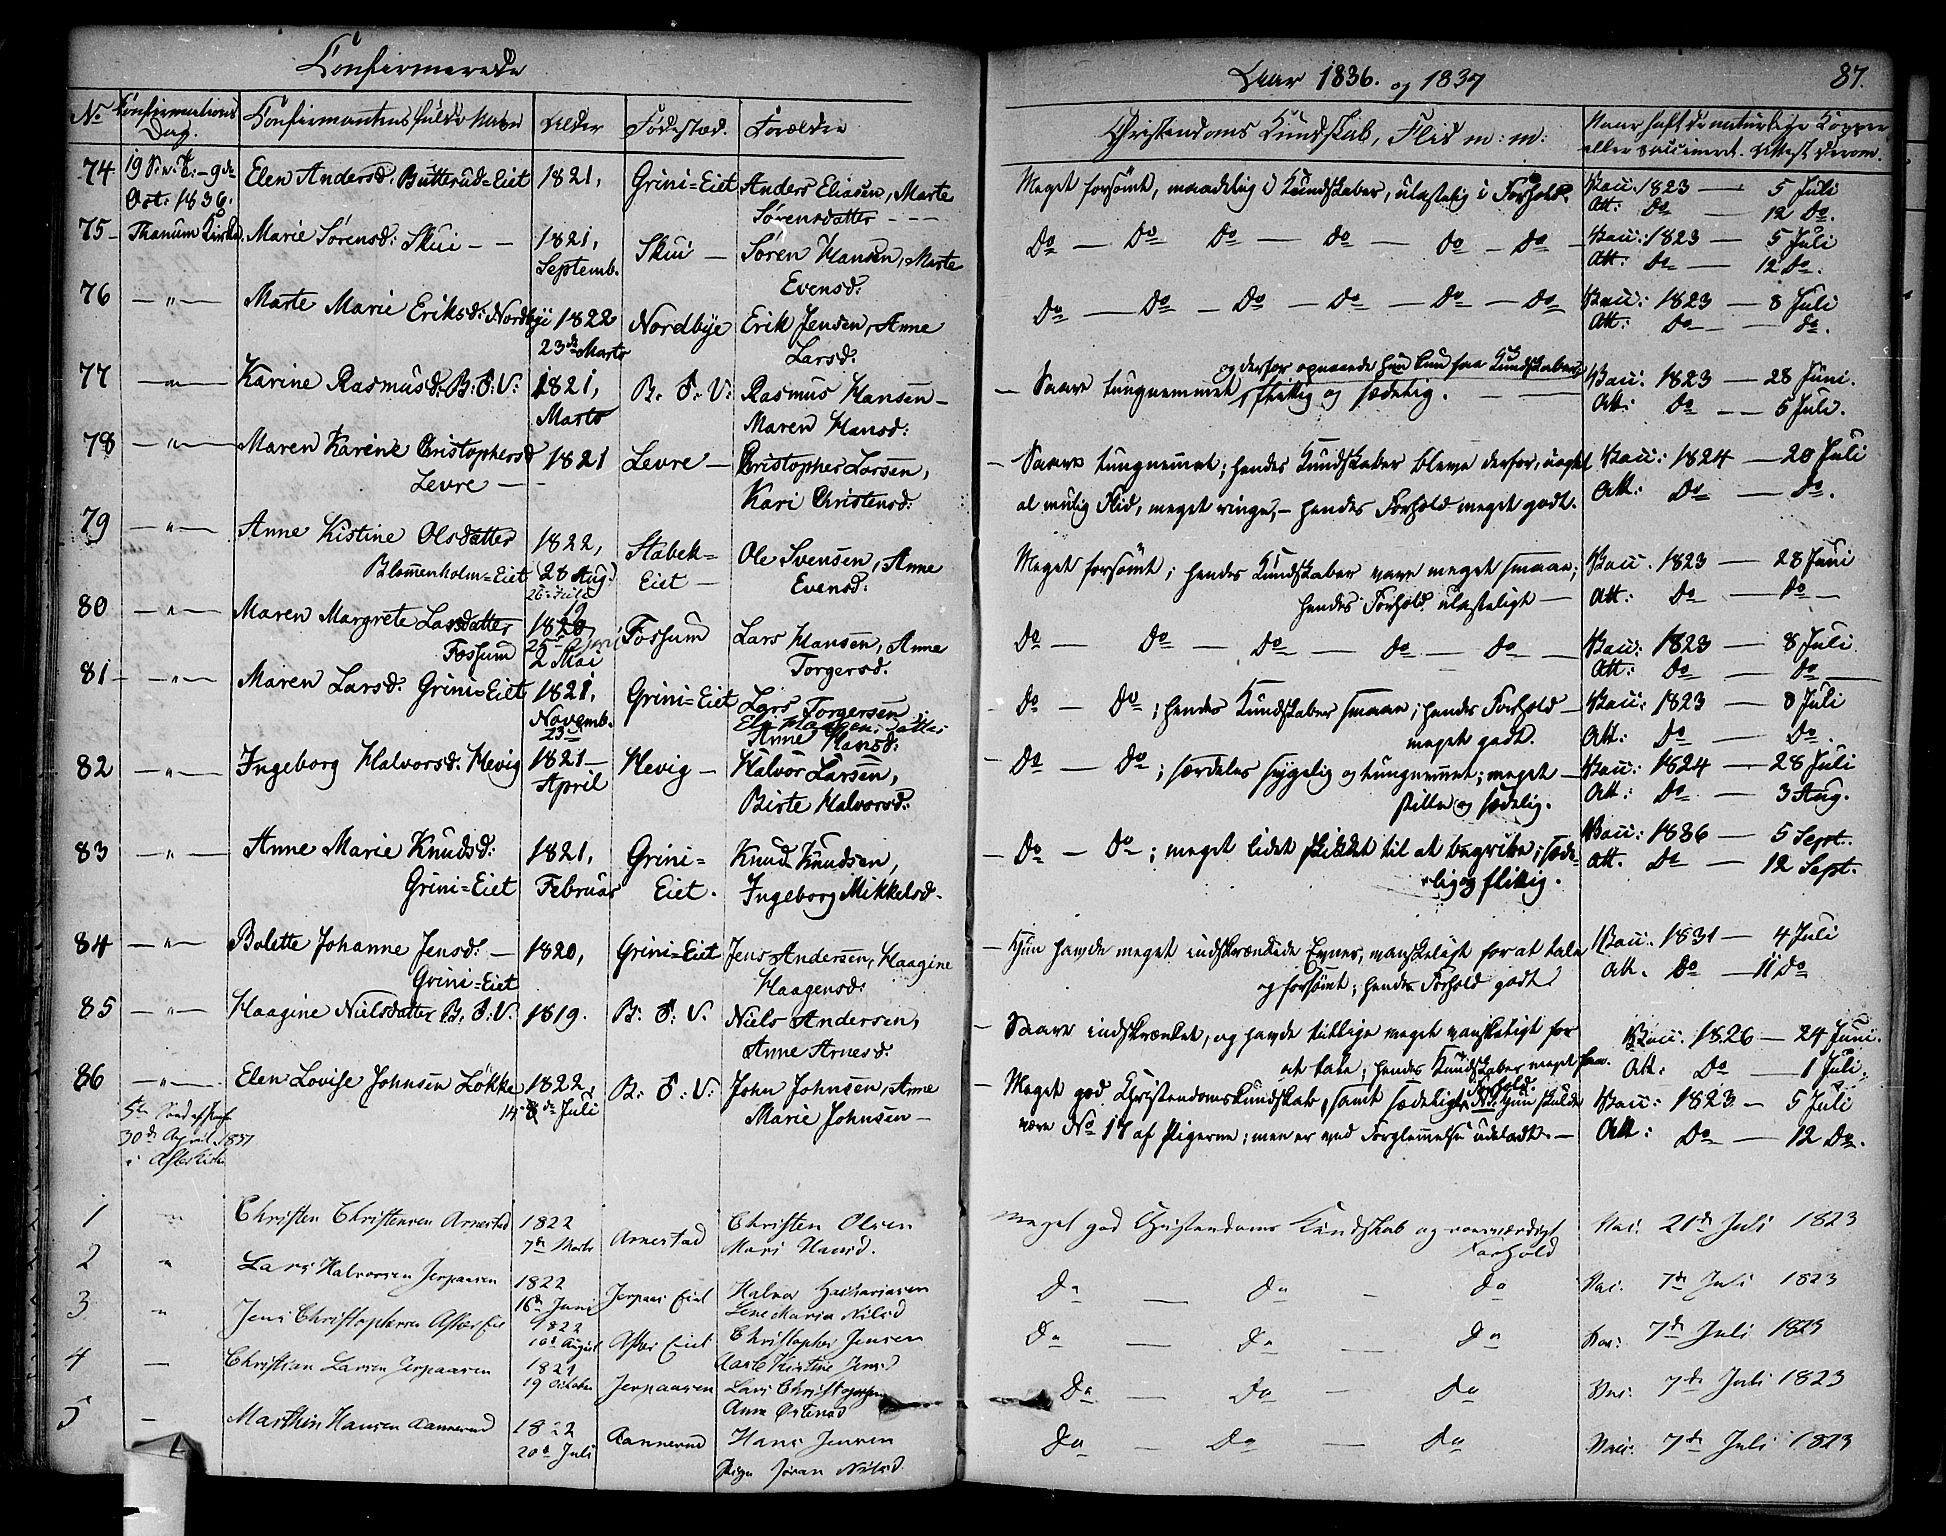 Confirmerede
Aar 1836. og 1837
87.
No Confirmations Dag. Confirmantens fulde Navn Alder Fødested. Forældre Christendoms Kundskab, Flid m: m: Naar haft de naturlige Kopper
eller vaccineret. Attest derom.
74 19 S. e. T: – 9de Elen Andersd: Butterud=Eiet 1821, Grini=Eiet Anders Eliasen, Marte Meget forsömt, maadelig i Kundskaber, ulastelig i Forhold. Vacc: 1823 — 5 Juli
Oct: 1836. Sørensdatter - - - Att: Do — 12 Do.
75 – Thanum Kirke. Marie Sørensd: Skui – – 1821, Skui – Søren Hansen, Marte Do – Do Do – Do – Do – Do – Vacc: 1823 — 5 Juli
Septemb. Evensd: Att: Do — 12 Do.
76 –"– Marte Marie Eriksd: Nordbye 1822 Nordbye Erik Jensen, Anne Do – Do – Do – Do – Do – Do Vacc: 1823 — 8 Juli
23de Marts Larsd: Att: Do — do.
og derfor opnaaede hun kun faa Kundskaber
77 –"– Karine Rasmusd: B: S: V: 1821, B. S. V: Rasmus Hansen – – Saare tungnemmet, flittig og sædelig. Vacc: 1823 — 28 Juni.
Marts Maren Hansd: Att: Do — 5 Juli.
78 –"– Maren Karine Christophersd 1821 Levre – Christopher Larsen, – Saare tungnemet; hendes Kundskaber bleve derfor, uagtet Vacc: 1824 — 20 Juli
Levre – – Kari Christensd: al mulig Flid, meget ringe, – hendes Forhold meget godt. Att: Do — Do.
79 –"– Anne Kistine Olsdatter 1822, Stabek= Ole Svensen, Anne Meget forsömt; hendes Kundskaber vare meget smaae; Vacc. 1823 — 28 Juni
Blommenholm=Eiet (28 Aug.) Eiet – Evensd: hendes Forhold ulasteligt — Att: Do — Do –
80 –"– Maren Margrete Larsdatter 1820 Fossum Lars Hansen, Anne Do – Do – Do – Do – Do – Vacc: 1823 — 8 Juli
Fossum 2 Mai Torgersd. Att: Do — Do
81 – –"– Maren Larsd: Grini=Eiet 1821, Grini=Eiet Lars Torgersen – Do – Do; hendes Kundskaber smaae; hendes Forhold – Vacc: 1823 — 8 Juli
Novemb. 23 Anne Hansd: meget godt. Att: Do — Do.
82 –"– Ingeborg Halvorsd: Hevig 1821 – Hevig – Halvor Larsen, – Do – Do; særdeles sygelig og tungnemmet; meget – Vacc: 1824 — 28 Juli
April Birte Halvorsd: stille og sædelig. Att: Do — 3 Aug.
83 –"– Anne Marie Knudsd: 1821, Grini= Knud Knudsen, – Do – Do; meget lidet skikket til at begribe; sæde- Vacc: 1836 — 5 Sept.
Grini=Eiet Februar Eiet. Ingeborg Mikkelsd. lig og flittig. Att. Do — 12 Sept.
84 –"– Bolette Johanne Jensd: – 1820, Grini=Eiet Jens Andersen, Haagine – Hun havde meget indskrænkede Evner, vanskeligt for at tale Vacc. 1831 — 4 Juli
Grini=Eiet Haagensd: og forsömt; hendes Forhold godt. Att. Do — 11 Do
85 –"– Haagine Nielsdatter B. S. V. 1819. B: S: V. Niels Andersen, – Saare indskrænket, og havde tillige meget vanskeligt for Vacc. 1826 — 24 Juni.
Anne Arnesd. at tale; hendes Kundskaber meget faae. Att: Do — 1 Juli.
86 –"– Elen Lovise Johnsen Løkke 1822, B: S: V: John Johnsen, Anne – Meget god Christendomskundskab, samt sædeligt Forhold. NB: Hun skulde Vacc: 1823 — 5 Juli
14de Juli Marie Johnsen – være No 17 af Pigerne; men er ved Forglemmelse udeladt. – Att: Do — 12 Do.
5te Sønd. eft.
30de April 1837
i Asker Kirke
1 " Christen Christensen Arnestad 1822 Arnestad Christen Olsen Meget god Christendoms Kundskab og roesværdigt Vac: 21de Juli 1823
7de Marts Mari Hansd. Forhold
2 " Lars Halvorsen Jerpaasen 1822 Jerpaas Eiet Halvor Do — Do – Do Vac: 7de Juli 1823
16de Juni Lene Maria Nilsd
3 " Jens Christophersen Asker Eie 1822 Asker Eiet Christopher Jensen Do — Do — Do Vac: 7de Juli 1823
10de August Kistine Jensd
4 — Christian Larsen Jerpaasen 1821 Jerpaasen Lars Christophersen Do — Do — Do Vac: 7de Juli 1823
19 October Anne
5 – Marthin Hansen Aannerud 1822 Aannerud Hans Jensen Do — Do — Do Vac: 7de Juli 1823
20de Juli Pige Jøran Nilsd.